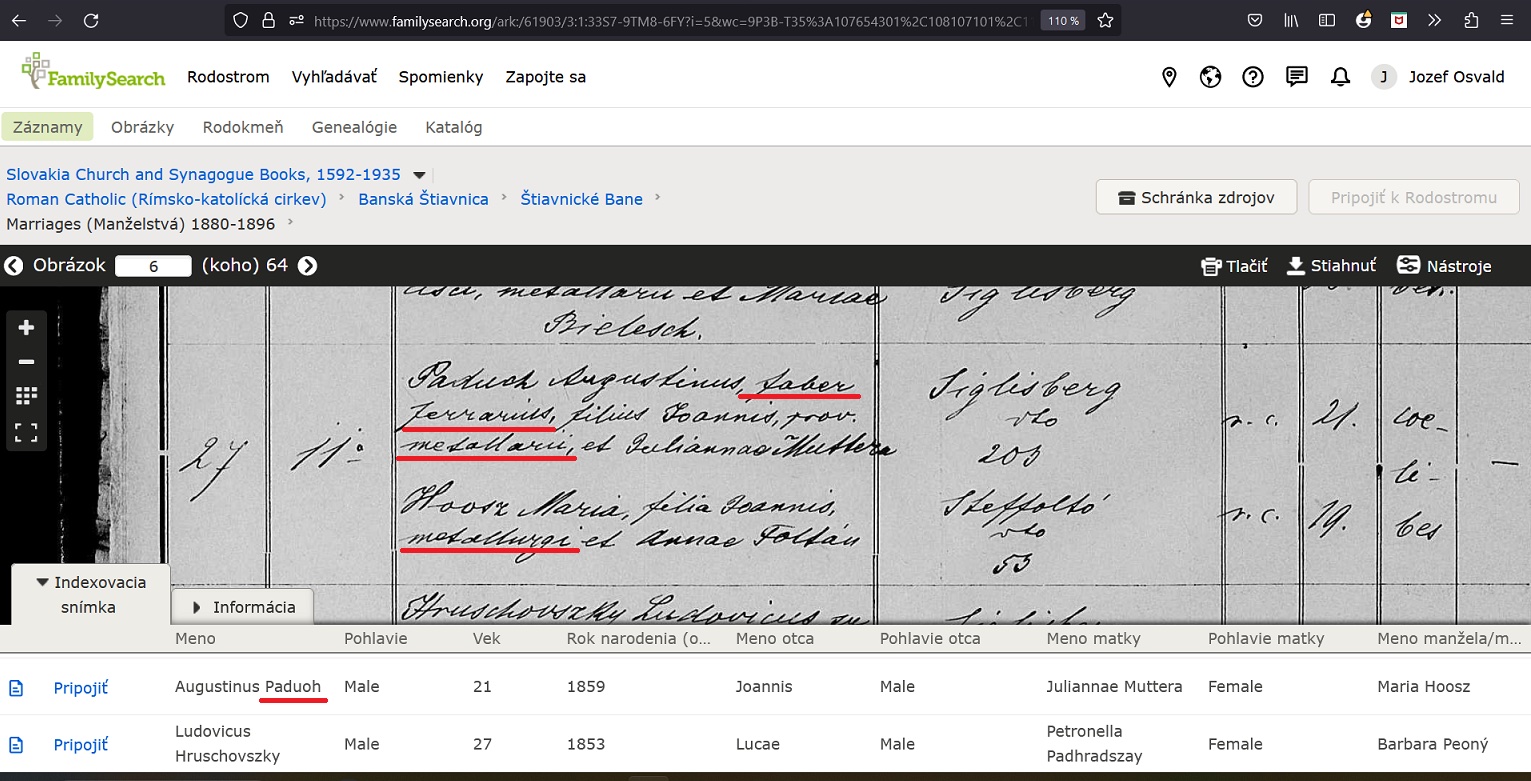 https://www.familysearch.org/ark:/61903/3:1:33S7-9TM8-6FY?i=5&wc=9P3B-T35%3A107654301%2C108107101%2C1
110 %
FamilySearch
Rodostrom
Vyhľadávať
Spomienky
Zapojte sa
J
Jozef Osvald
Záznamy
Obrázky
Rodokmeň
Genealógie
Katalóg
Slovakia Church and Synagogue Books, 1592-1935
Roman Catholic (Rímsko-katolícká cirkev) › Banská Štiavnica › Štiavnické Bane ›
Marriages (Manželstvá) 1880-1896 ›
Schránka zdrojov
Pripojiť k Rodostromu
Obrázok 6 (koho) 64
Tlačiť
Stiahnuť
Nástroje
metallarii et Mariae
Siglisberg
Bielesch.
27
11º
Paduch Augustinus, faber
ferrarius, filius Joannis, prov.
metallarii, et Juliannae Muttera
Siglisberg
vto
203
r. c.
21.
coe-
Hoosz Maria, filia Joannis,
metallurgi et Annae Foltán
Steffoltó
vto
53
r. c.
19.
li-
bes
—
Hruschovszky Ludovicus
Indexovacia
snímka
Informácia
Meno
Pohlavie
Vek
Rok narodenia (o...
Meno otca
Pohlavie otca
Meno matky
Pohlavie matky
Meno manžela/m...
Pripojiť
Augustinus Paduoh
Male
21
1859
Joannis
Male
Juliannae Muttera
Female
Maria Hoosz
Pripojiť
Ludovicus
Hruschovszky
Male
27
1853
Lucae
Male
Petronella
Padhradszay
Female
Barbara Peoný